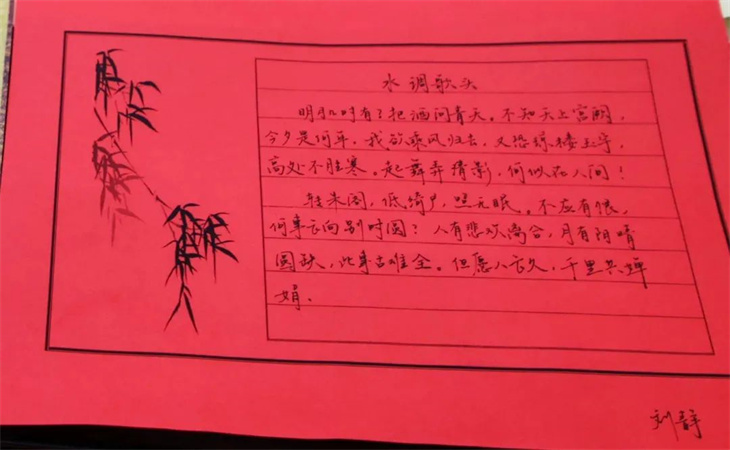 水调歌头
明月几时有？把酒问青天。不知天上宫阙，
今夕是何年。我欲乘风归去，又恐琼楼玉宇，
高处不胜寒。起舞弄清影，何似在人间！
转朱阁，低绮户，照无眠。不应有恨，
何事长向别时圆？人有悲欢离合，月有阴晴
圆缺，此事古难全。但愿人长久，千里共婵
娟。
刘